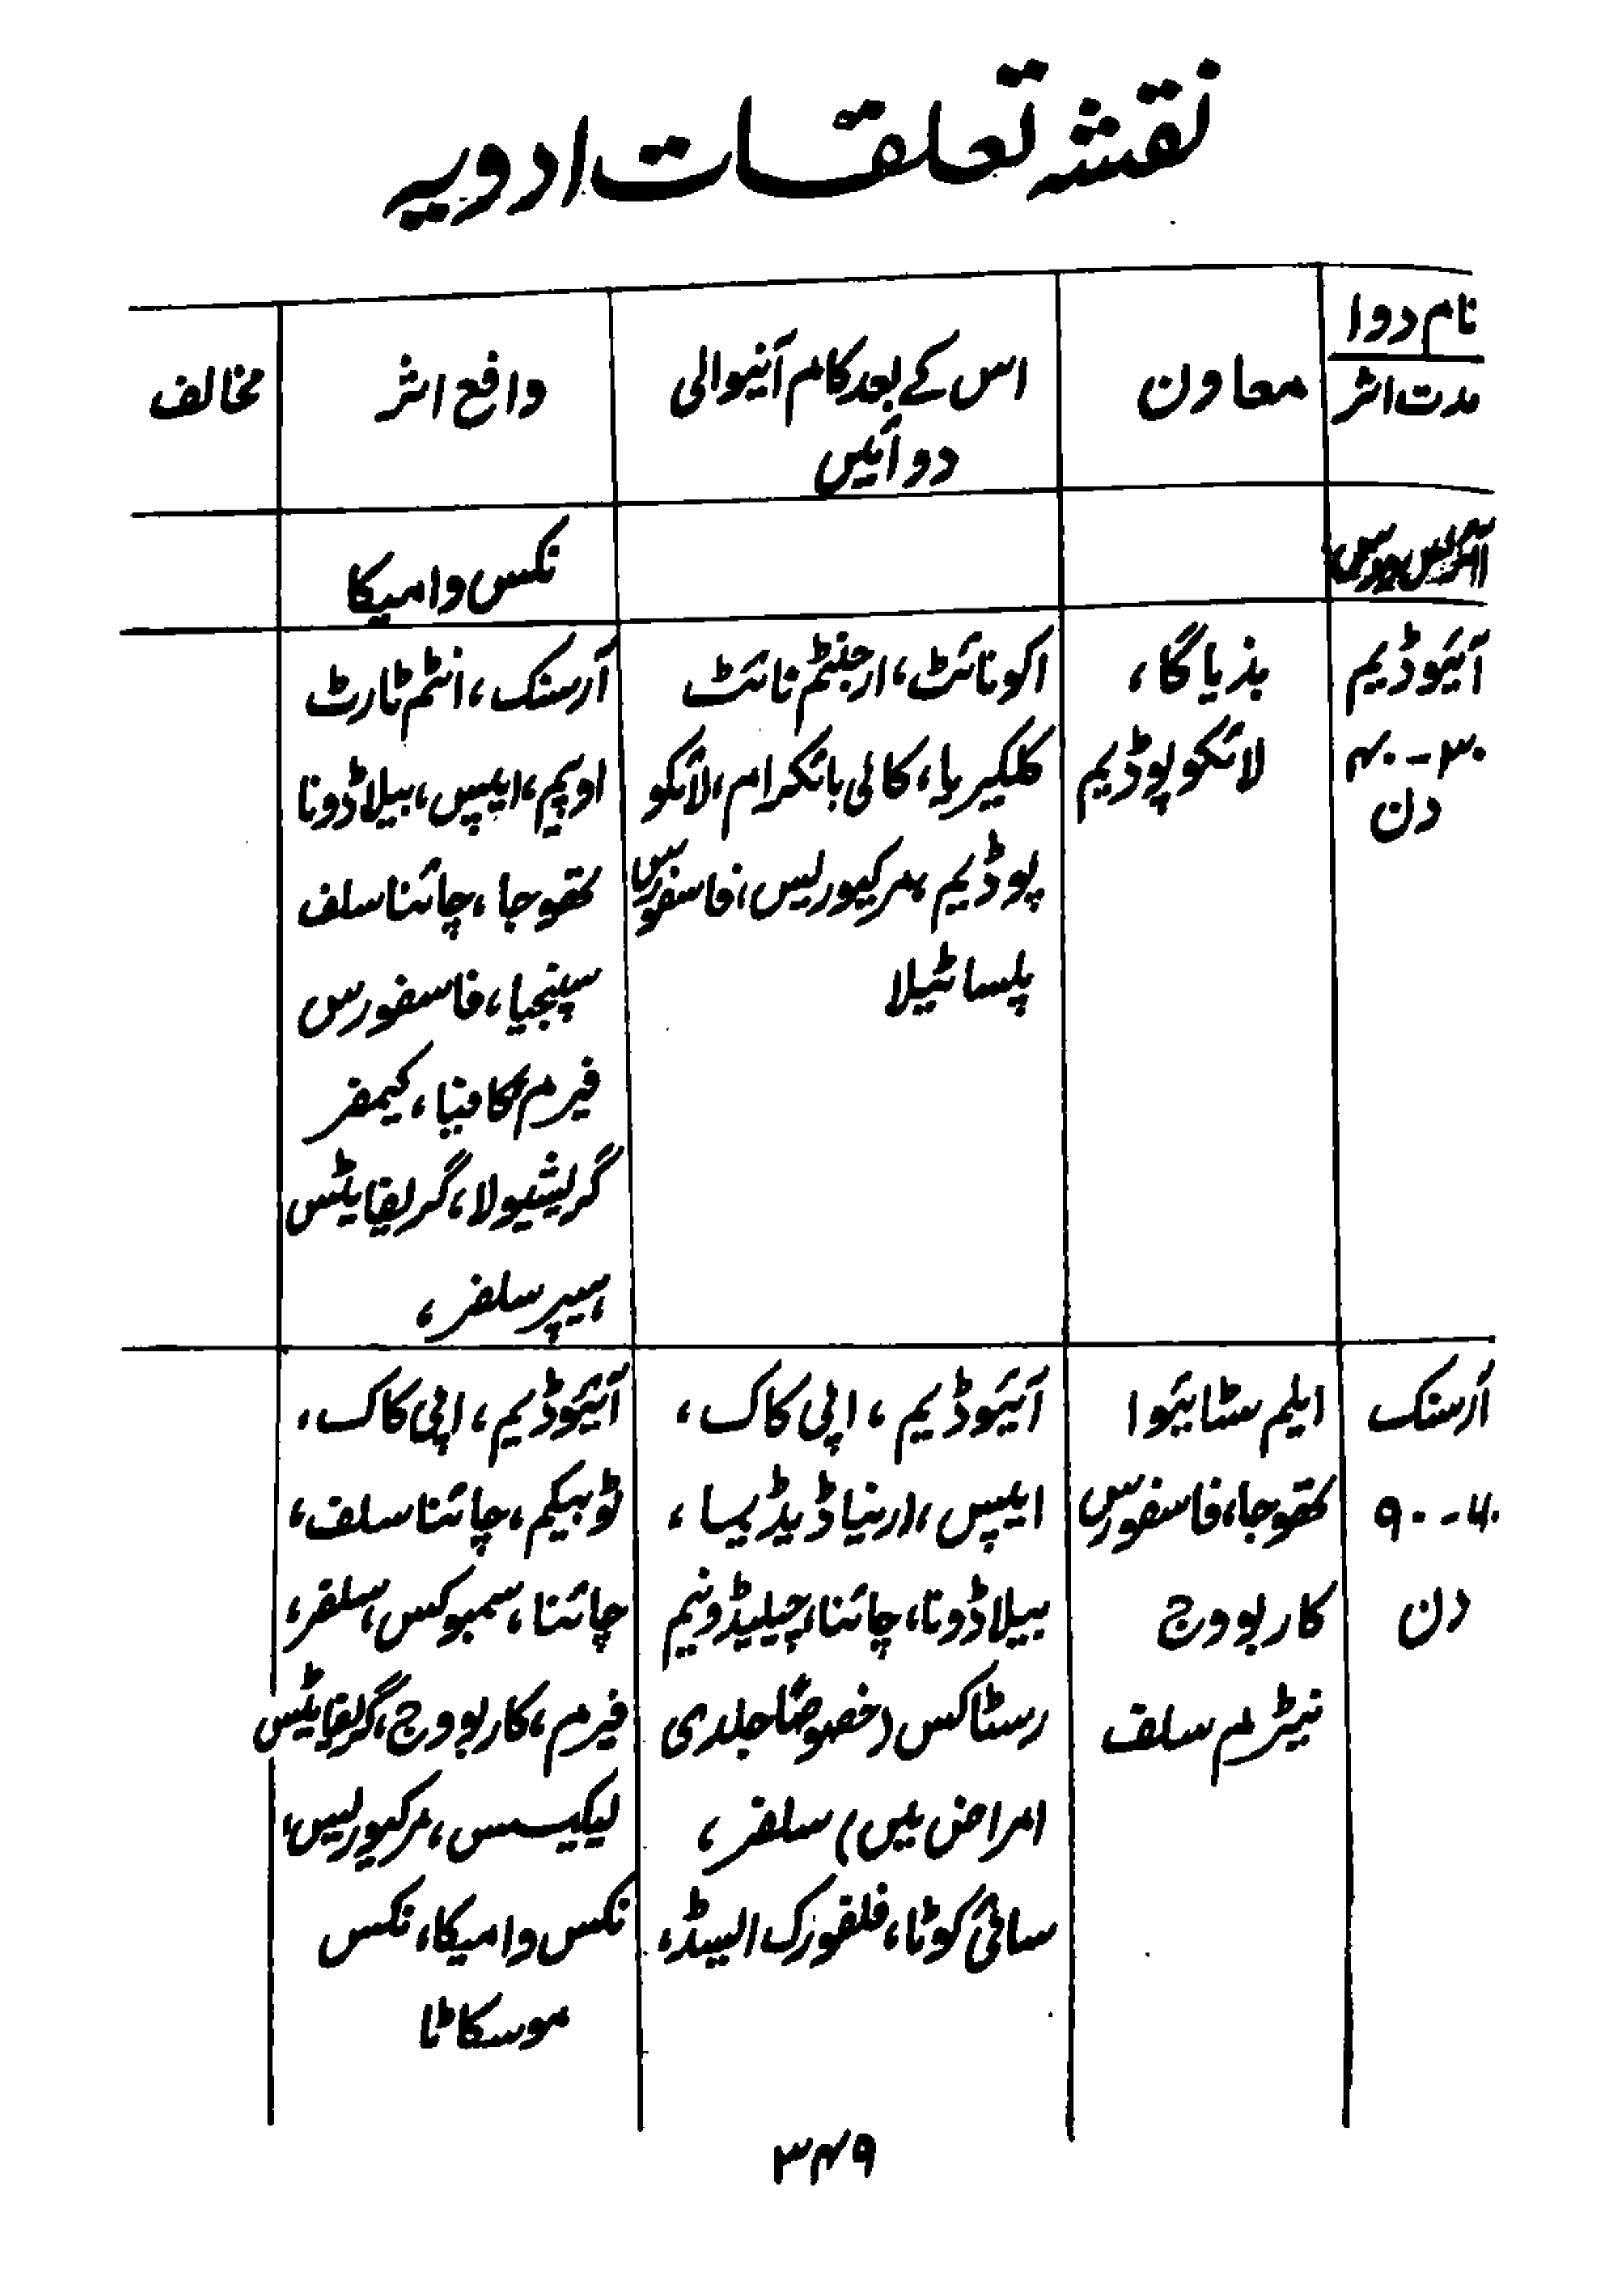 نقشہ تعلقات ادویہ
نام دوا
مدت اثر
معاون
اس کے بعد کام آنیوالی
دوائیں
دافع اثر
مخالف
نکس وامیکا
آئیوڈیم
۳۰-۴۰
دن
بذیاگا،
لائکو پوڈیم
اکونائٹ، ارجنٹم نائٹ
کلکیریا، کالی بائکرام، لائکو
پوڈیم، مرکیورلیس، فاسفورس
پلساٹیلا
آرسنک، انٹم ٹارٹ
اوپیم، ایپس، بیلاڈونا
تھوجا، چائنا سلف
سپنجیا، فاسفورس
فیرم، کافیا، کیمفر
گریشیولا، گریفایٹس
ہیپر سلفر،
آرسنک
۶۰-۹۰
دن
ایلم سٹائیوا
تھوجا، فاسفورس
کاربو ووج
نیٹرم سلف
آئیوڈیم، اپی کاک،
ایپس، ارنیا ڈیڈیما،
بیلاڈونا، چائنا، چیلیڈونیم
رسٹاکس (خصوصًا جلدی
امراض میں) سلفر،
سائی کوٹا، فلفورک ایسڈ،
آئیوڈیم، اپی کاک،
ٹوبیکم، چائنا سلف،
چائنا، سمبوکس، سلفر،
فیرم، کاربو ووج، گریفایٹس
لیکیسس، مرکیورلیس،
نکس وامیکا، نکس
موسکاٹا
۳۴۹